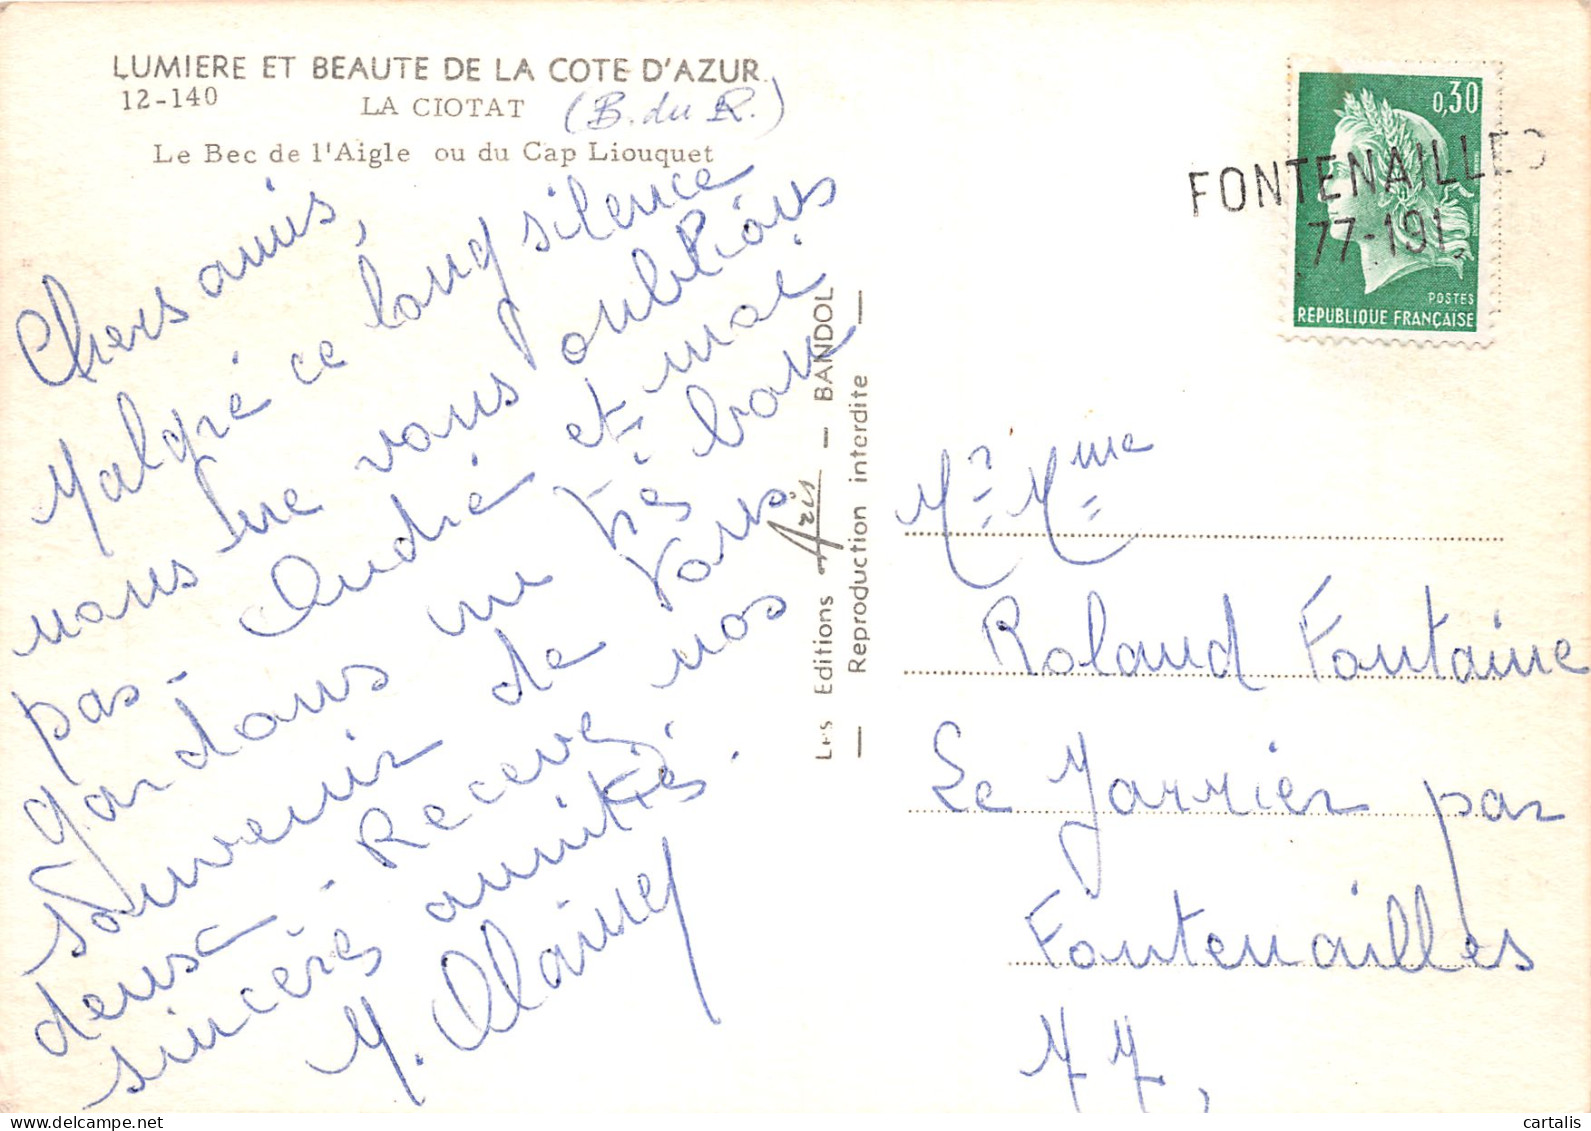 LUMIERE ET BEAUTE DE LA COTE D'AZUR
12-140
LA CIOTAT (B. du R.)
Le Bec de l'Aigle ou du Cap Liouquet
Chers amis,
Malgré ce long silence
nous ne vous oublions
pas - André et moi
gardons un très bon
souvenir de vous
deux - Recevez nos
sincères amitiés.
M.
LES Editions Aris — BANDOL
— Reproduction interdite —
0,30
POSTES
REPUBLIQUE FRANÇAISE
FONTENAILLES
77-191
Mr Mme
Roland Fontaine
Le Jarrier par
Fontenailles
77,
cartalis